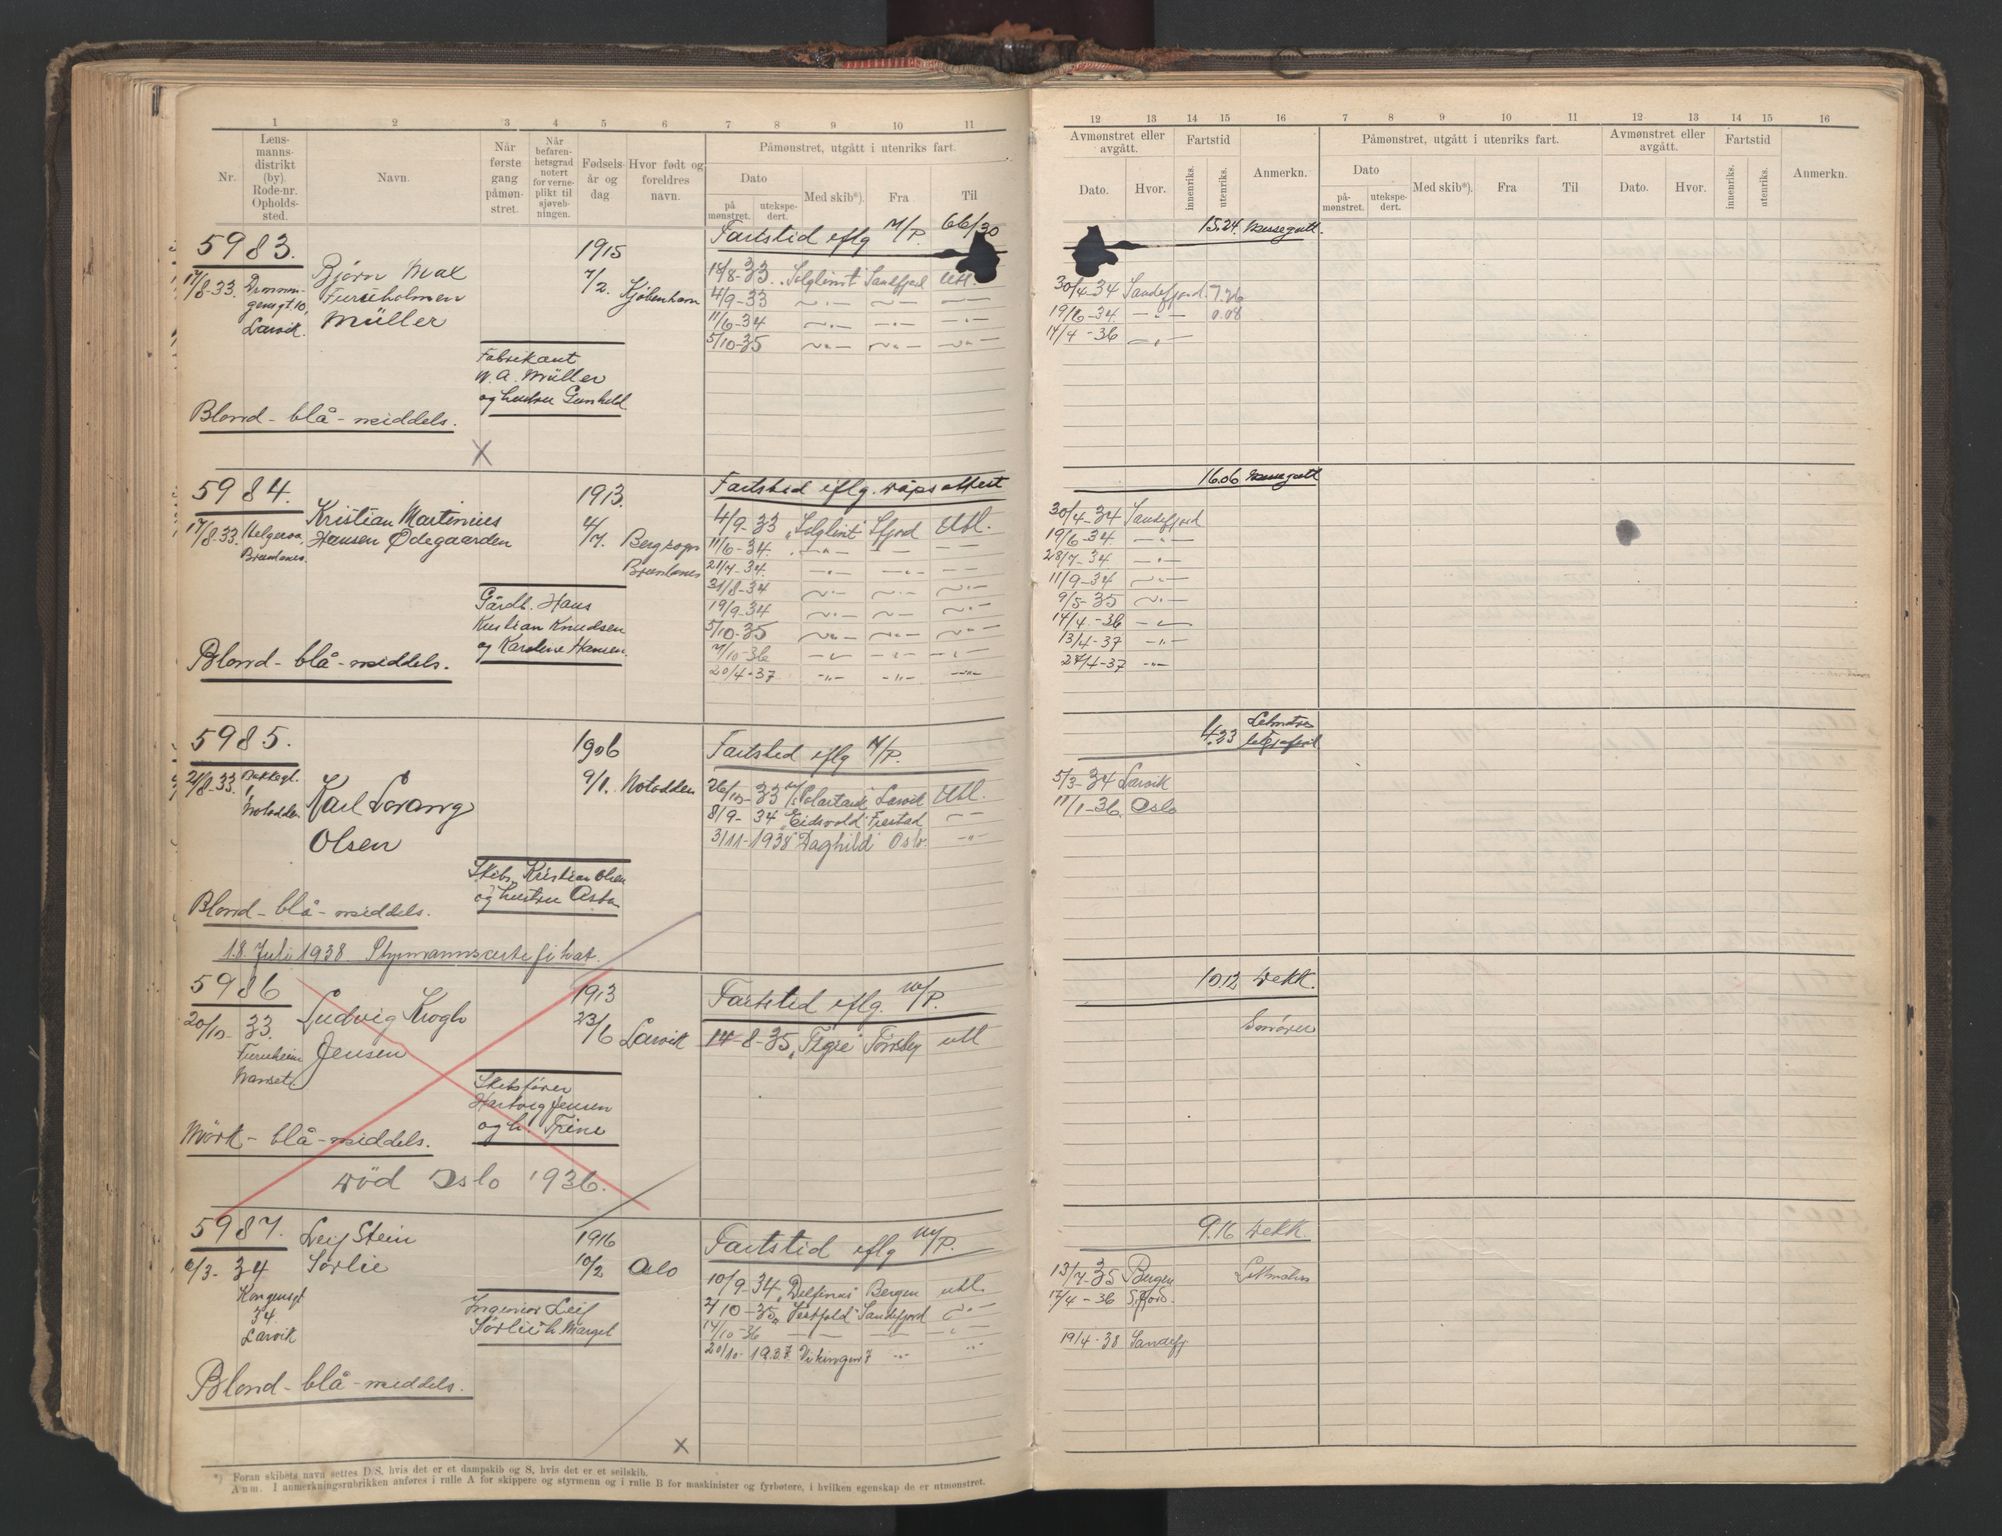 1 2 3 4 5 6 7 8 9 10 11
Nr. Lensmannsdistrikt (by). Rode-nr. Opholdssted. Navn. Når første gang påmønstret. Når befarenhetsgrad notert for verneplikt til sjøvebningen. Fødselsår og dag Hvor født og foreldres navn. Påmønstret, utgått i utenriks fart.
Dato Med skib*). Fra Til
på mønstret. utekspedert.
12 13 14 15 16 7 8 9 10 11 12 13 14 15 16
Avmønstret eller avgått. Fartstid Anmerkn. Påmønstret, utgått i utenriks fart. Avmønstret eller avgått. Fartstid Anmerkn.
Dato. Hvor. innenriks. utenriks. Dato Med skib*). Fra Til Dato. Hvor. innenriks. utenriks.
påmønstret. utekspedert.
5983. 1915 Fartstid eflg M/P. 66/30 15.24. Messegutt.
17/8-33. Drammengensgt. 10, Larvik. Bjørn Max Furuholmen Müller 7/2. Kjøbenhavn
18/8-33. "Solglimt" Sandefjord Utl. 30/4-34 Sandefjord. 7.26
4/9-33 19/6-34. 0.08
11/6-34 14/4-36
5/10-35
Fabrikant
W. A. Müller
og hustru Gunhild
Blond - blå - middels.
X
5984. 1913. Fartstid eflg. våpsattest 16.06 Messegutt
17/8-33. Helgeroa, Brunlanes. Kristian Martinius Hansen Ødegaarden 4/7. Bergsogn Brunlanes
4/9-33 "Solglimt" Sfjord Utl. 30/4-34 Sandefjord
11/6-34. 19/6-34.
21/7-34. 28/7-34.
31/8-34 11/9-34
19/9-34 9/5-35
5/10-35 14/4-36
7/10-36 13/4-37
20/4-37 27/4-37
Gårdb. Hans
Kristian Knudsen
og Karoline Hansen.
Blond - blå - middels.
5985. 1906 Fartstid eflg M/P. 4.23 Letmatros
21/8-33. Notodden Karl Lorang Olsen 9/1. Notodden
26/10-33 "Polartank" Larvik Utl. 5/3-34 Larvik
8/9-34 "Eidsvold" Frestad 11/1-36. Oslo
3/11-1938 "Daghild" Oslo.
Skibs. Kristian Olsen
og hustru Asta
Blond - blå - middels.
18. Juli 1938 Styrmannscertifikat.
5986 1913 Fartstid eflg. M/P. 10.12 Dekk.
20/10-33. Furuheim Nanset Ludvig Krogh Jensen 23/6 Larvik 14-8-35 "Tigre" Tønsbg utl Smører
Skibsfører
Hartvig Jensen
og h. Trine
Mørk - blå - middels.
Død Oslo 1936.
5987. Leif Stein Sørlie 1916 Fartstid eflg M/P. 9.16 Dekk.
6/3-34 Kongensgt 34. Larvik 10/2 Oslo
10/9-34 "Delfinus" Bergen utl. 13/7-35 Bergen Letmatros
2/10-35 "Vestfold" Sandefjord 17/4-36 Sfjord.
14/10-36
20/10-1937. Vikingen 7 19/4-38 Sandefj
Ingeniør Leif
Sørlie h. Margit
Blond - blå - middels.
X
*) Foran skibets navn settes D/S, hvis det er et dampskib og S, hvis det er et seilskib.
Anm. I anmerkningsrubrikken anføres i rulle A for skippere og styrmenn og i rulle B for maskinister og fyrbøtere, i hvilken egenskap de er utmønstret.